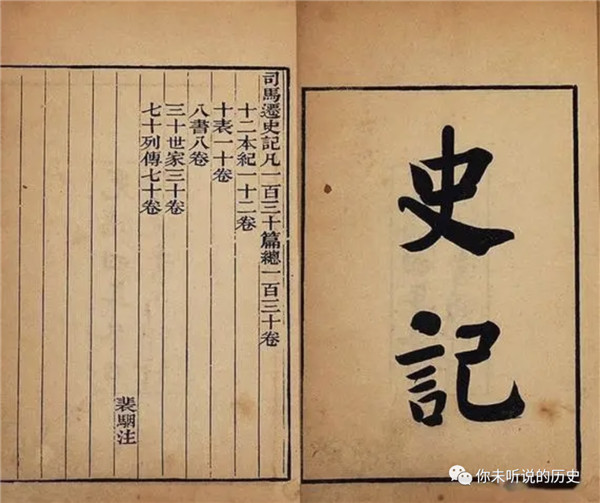 史記
司馬遷史記凡一百三十篇總一百三十卷
十二本紀一十二卷
十表一十卷
八書八卷
三十世家三十卷
七十列傳七十卷
裴駰注
你未听说的历史